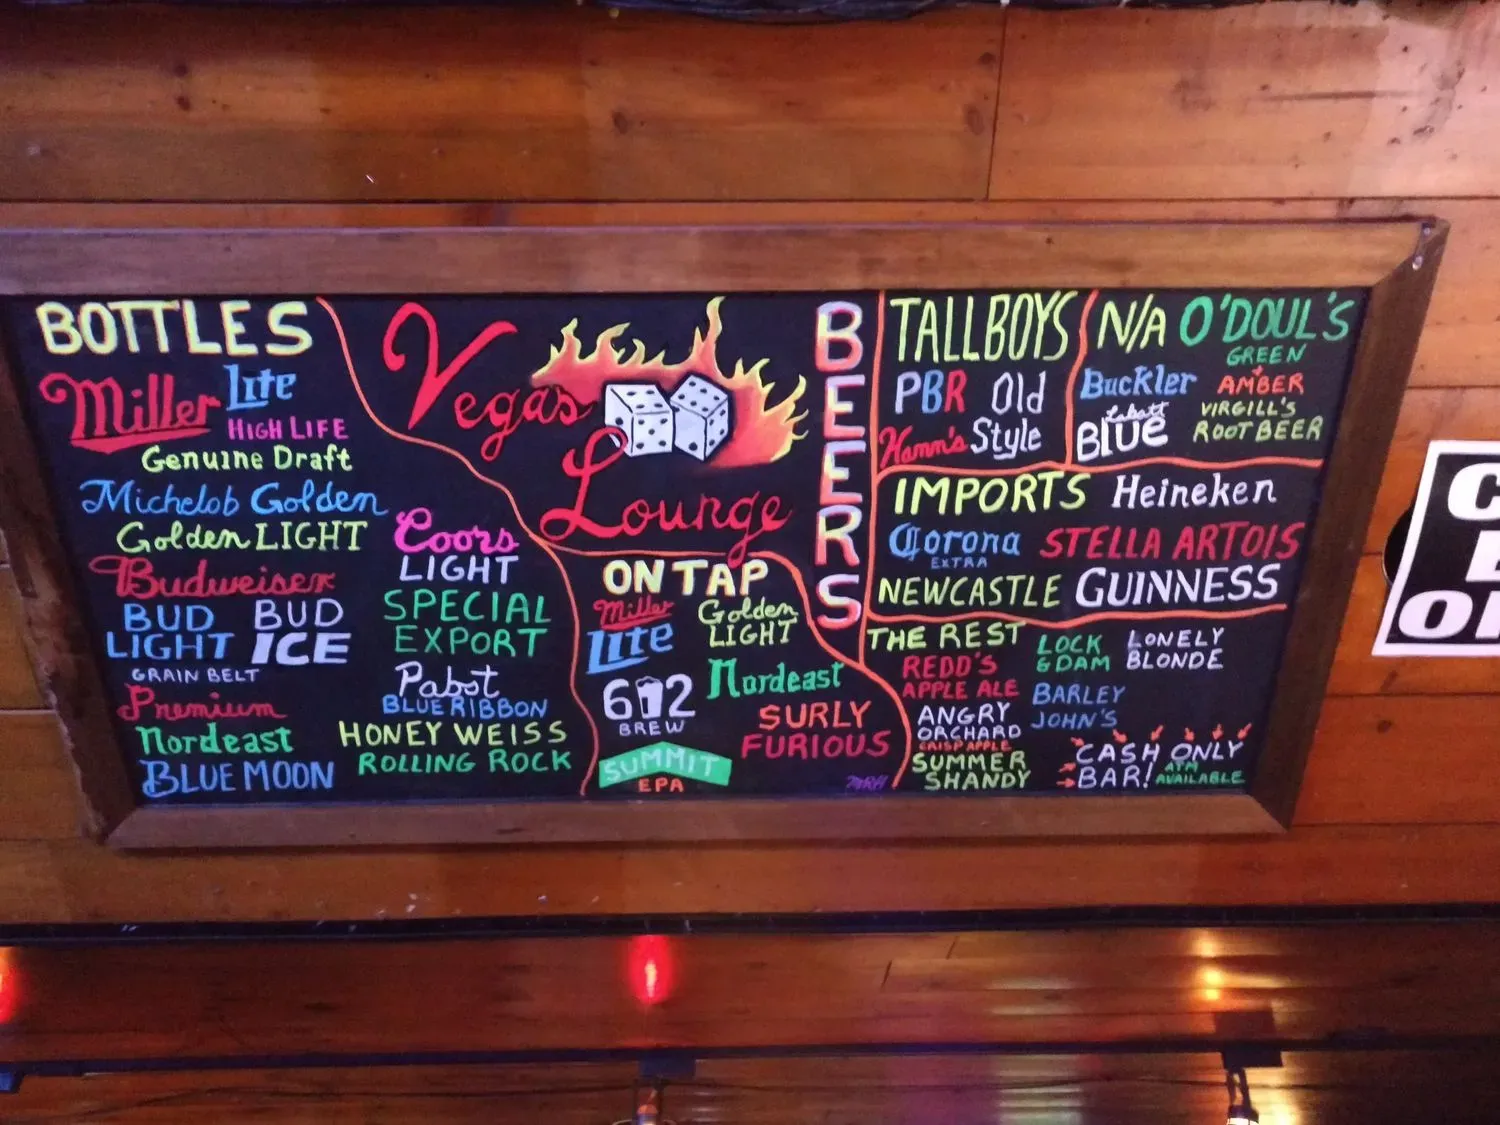 BOTTLES
Miller Lite
HIGH LIFE
Genuine Draft
Michelob Golden
Golden LIGHT
Budweiser
BUD LIGHT
BUD ICE
GRAIN BELT
Premium
Nordeast
BLUE MOON
Coors
LIGHT
SPECIAL
EXPORT
Pabst
BLUE RIBBON
HONEY WEISS
ROLLING ROCK
Vegas
Lounge
BEERS
ON TAP
Miller
Lite
Golden
LIGHT
612
BREW
Nordeast
SUMMIT
EPA
SURLY
FURIOUS
MRH
TALLBOYS
PBR
Old
Style
Hamm's
N/A O'DOUL'S
GREEN
+
AMBER
Buckler
Labatt
BLUE
VIRGILL'S
ROOT BEER
IMPORTS Heineken
Corona
EXTRA
STELLA ARTOIS
NEWCASTLE GUINNESS
THE REST
REDD'S
APPLE ALE
ANGRY
ORCHARD
CRISP APPLE
SUMMER
SHANDY
LOCK
& DAM
LONELY
BLONDE
BARLEY
JOHN'S
CASH ONLY
BAR! ATM
AVAILABLE